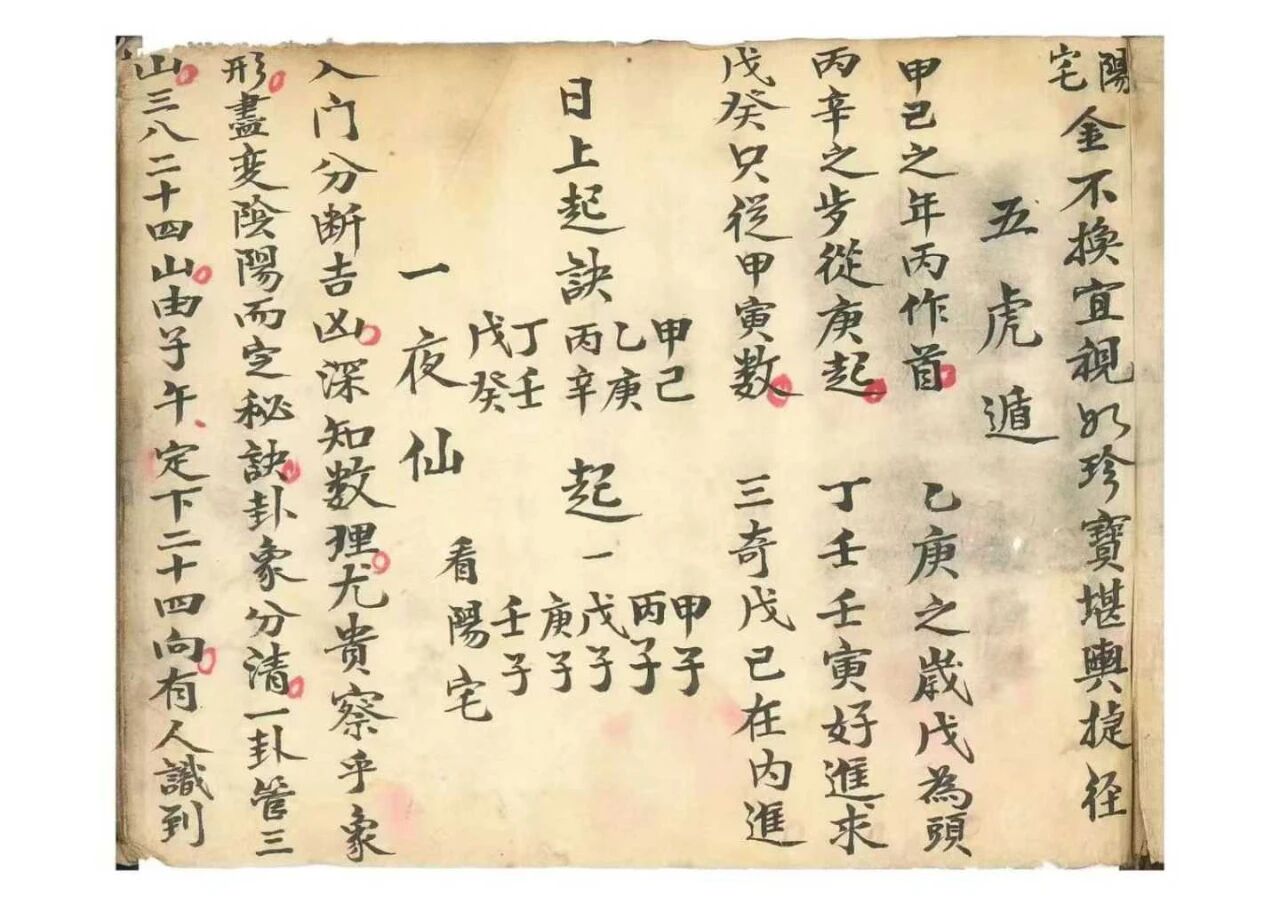 陽宅金不換宜視如珍寶堪輿捷徑
五虎遁
甲己之年丙作首 乙庚之歲戊為頭
丙辛之步從庚起 丁壬壬寅好進求
戊癸只從甲寅数 三奇戊己在内進
日上起訣 甲己 乙庚 丙辛 丁壬 戊癸 起一 甲子 丙子 戊子 庚子 壬子
一夜仙 看陽宅
入门分断吉凶深知数理尤貴察乎象
形盡变陰陽而定秘訣卦象分清一卦管三
山三八二十四山由子午定下二十四向有人識到